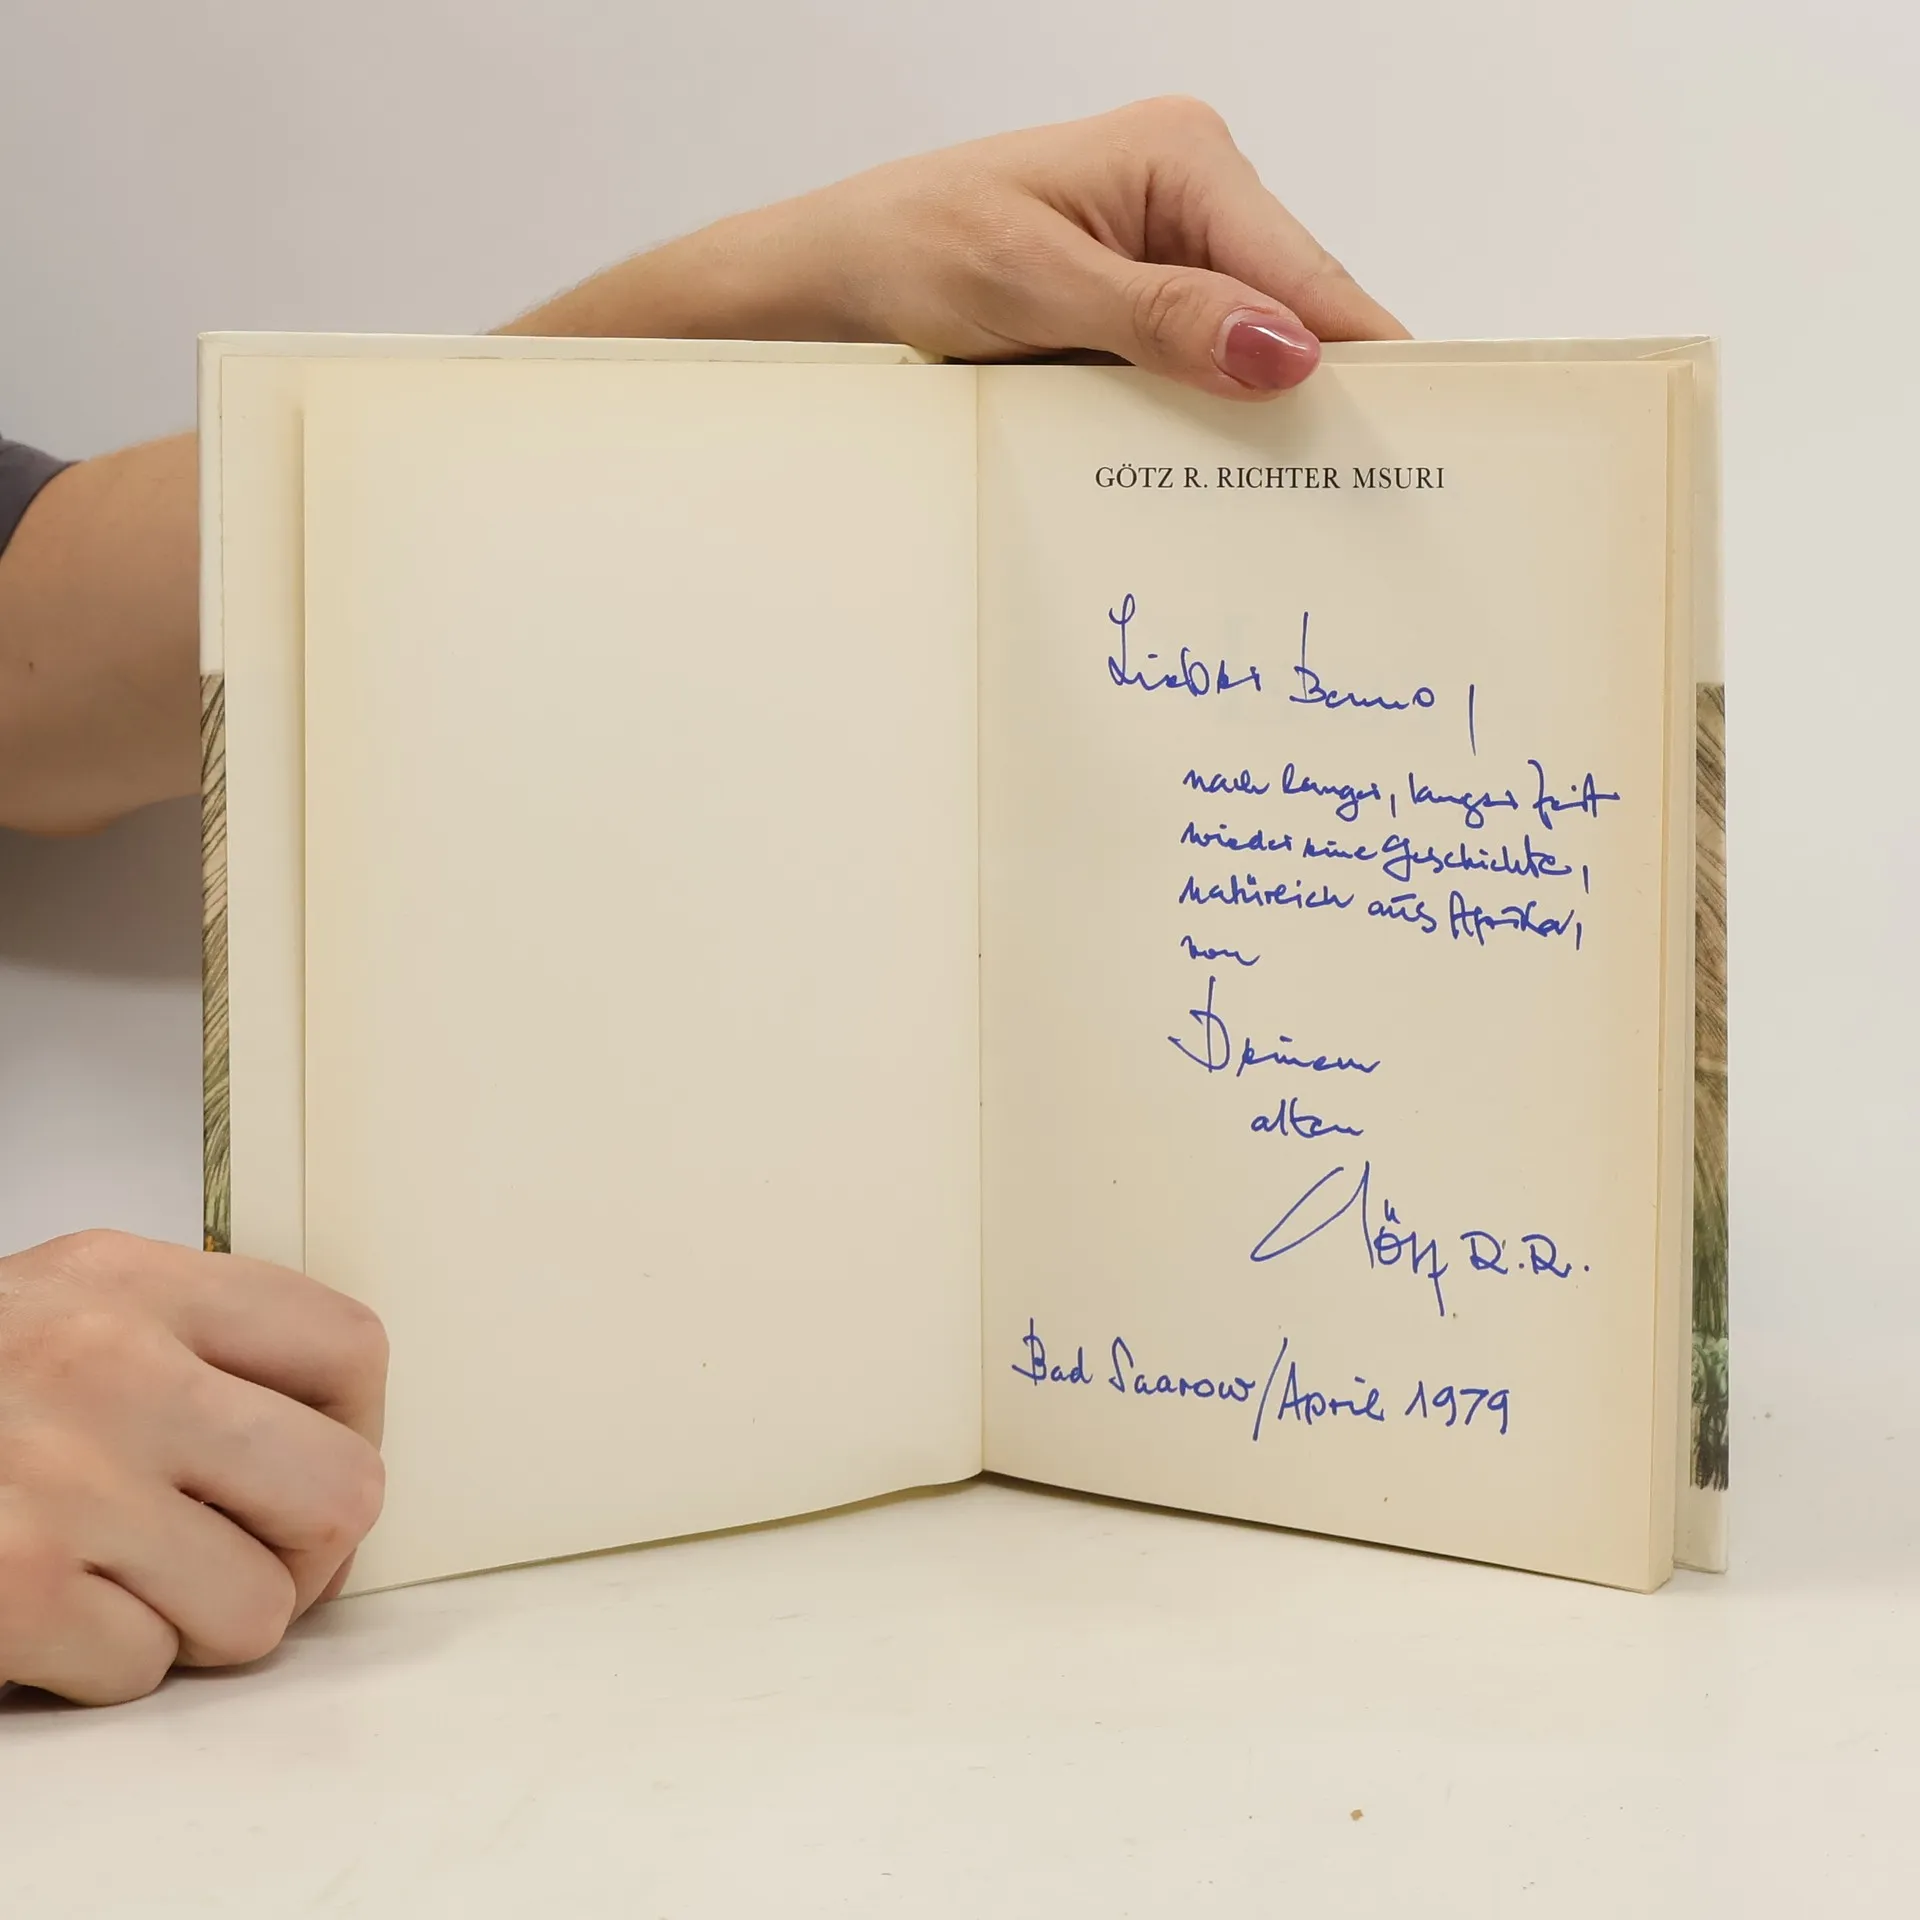 GÖTZ R. RICHTER MSURI
Lieber Benno,
nach langer, langer Zeit
wieder eine Geschichte,
natürlich aus Afrika,
von
Deinem
alten
Götz R. R.
Bad Saarow/April 1979